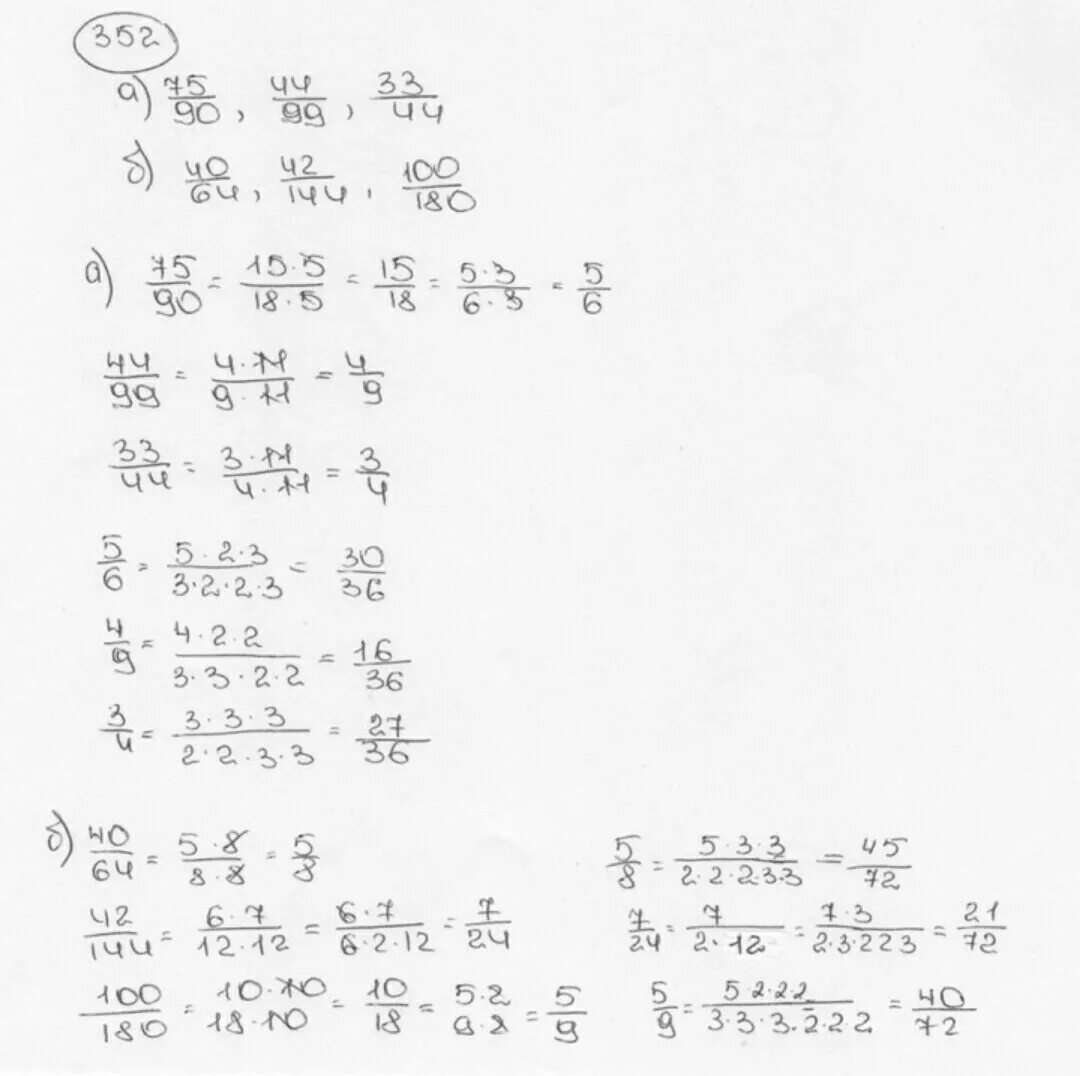 352
а) 75/90, 44/99, 33/44
б) 40/64, 42/144, 100/180
а) 75/90 = 15·5/18·5 = 15/18 = 5·3/6·3 = 5/6
44/99 = 4·11/9·11 = 4/9
33/44 = 3·11/4·11 = 3/4
5/6 = 5·2·3/3·2·2·3 = 30/36
4/9 = 4·2·2/3·3·2·2 = 16/36
3/4 = 3·3·3/2·2·3·3 = 27/36
б) 40/64 = 5·8/8·8 = 5/8
42/144 = 6·7/12·12 = 6·7/6·2·12 = 7/24
100/180 = 10·10/18·10 = 10/18 = 5·2/9·2 = 5/9
5/8 = 5·3·3/2·2·2·3·3 = 45/72
7/24 = 7/2·12 = 7·3/2·3·2 2 3 = 21/72
5/9 = 5·2·2·2/3·3·3·2·2·2 = 40/72